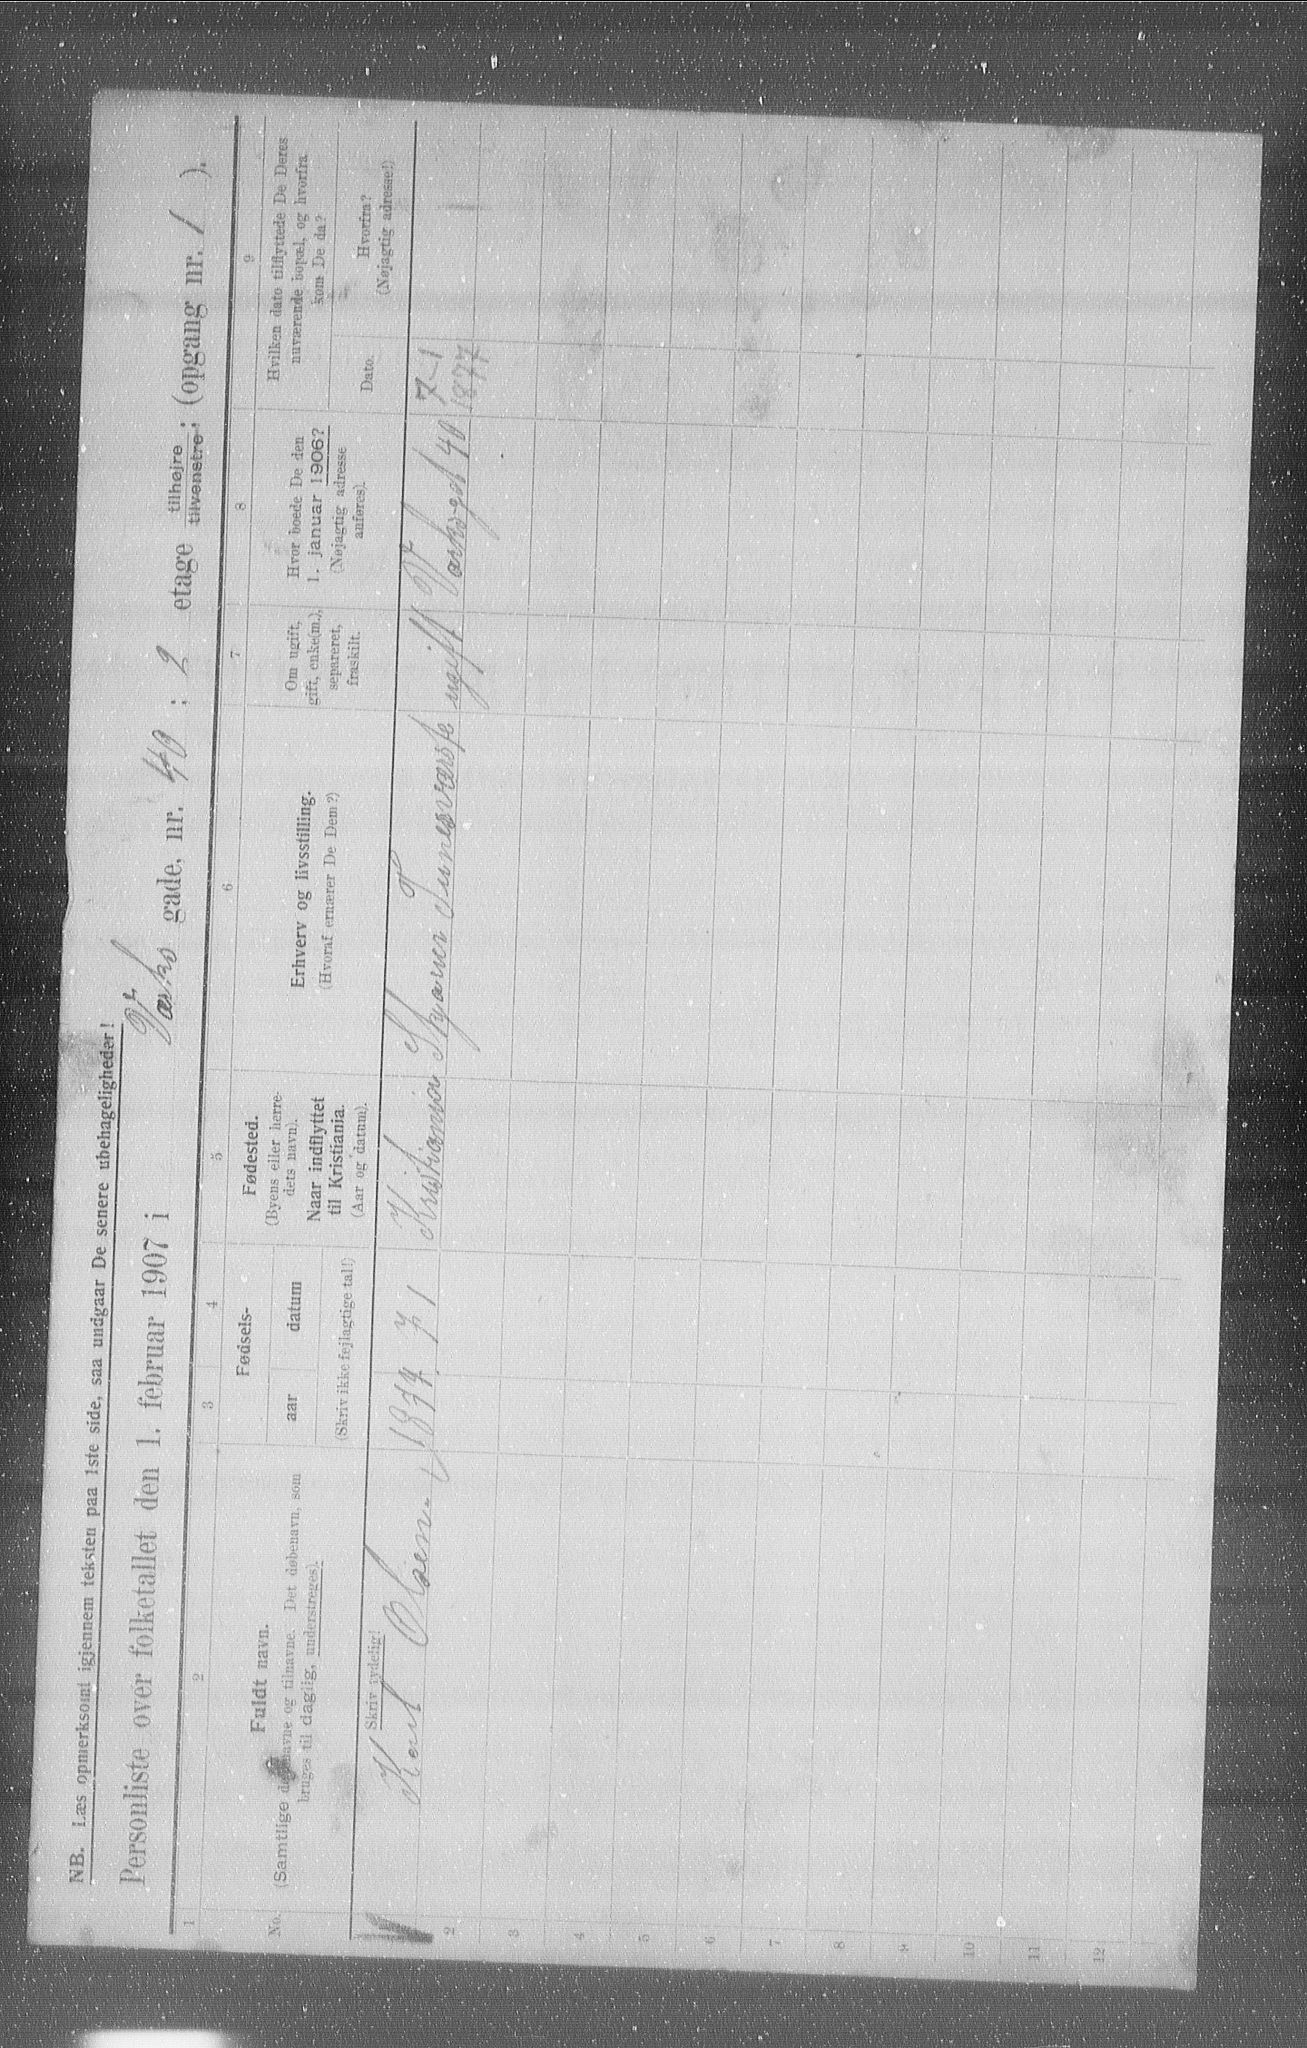 NB. Læs opmerksomt igjennem teksten paa 1ste side, saa undgaar De senere ubehageligheder!
Personliste over folketallet den 1. februar 1907 i Værks gade, nr. 40 ; 2 etage tilhøjre tilvenstre ; (opgang nr. 1 ).
1 2 3 4 5 6 7 8 9
No.
Fuldt navn.
(Samtlige døbenavne og tilnavne. Det døbenavn, som
bruges til daglig, understreges).
Skriv tydelig!
Fødsels-
aar datum
(Skriv ikke fejlagtige tal!)
Fødested.
(Byens eller herre-
dets navn).
Naar indflyttet
til Kristiania.
(Aar og datum).
Erhverv og livsstilling.
(Hvoraf ernærer De Dem?)
Om ugift,
gift, enke(m.),
separeret,
fraskilt.
Hvor boede De den
1. januar 1906?
(Nøjagtig adresse
anføres).
Hvilken dato tilflyttede De Deres
nuværende bopæl, og hvorfra
kom De da?
Dato.
Hvorfra?
(Nøjagtig adresse!)
Karl Olsen. 1877 7/1 Kristiania ugift 40 7-1
1877
2
3
4
5
6
7
8
9
10
11
12